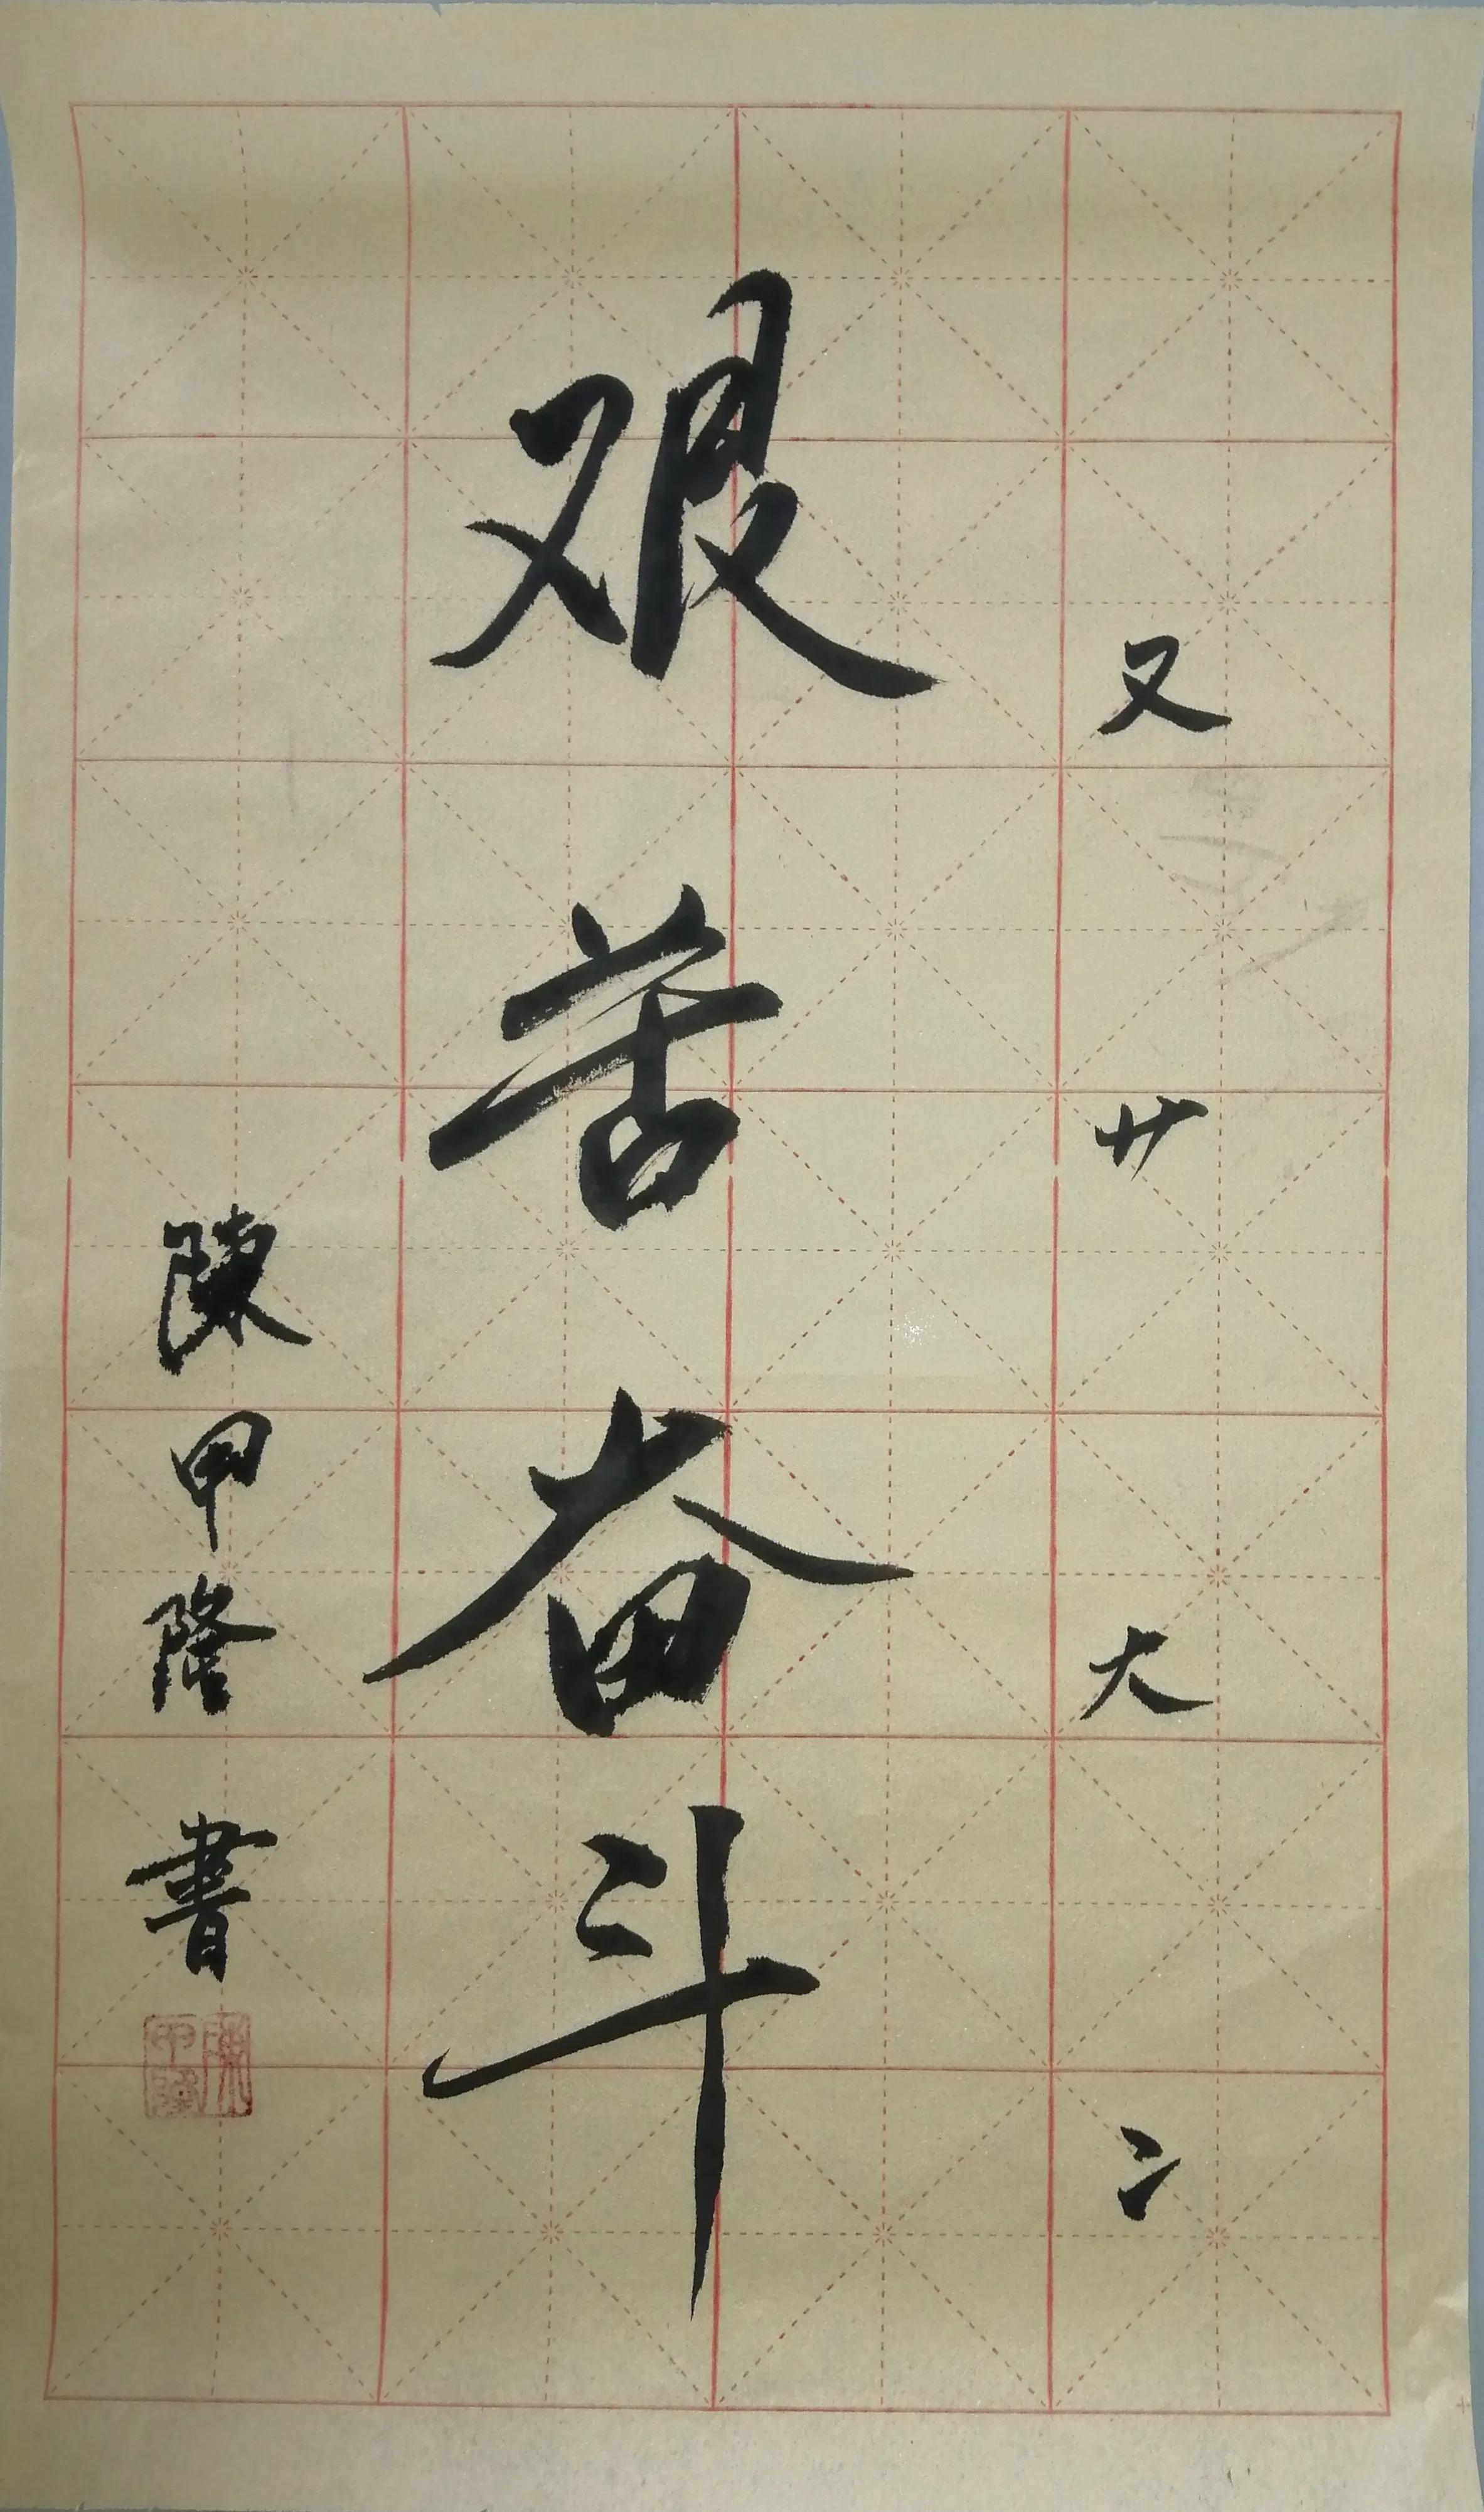 又 艹 大 冫
艰苦奋斗
陳甲隆書
陳甲隆